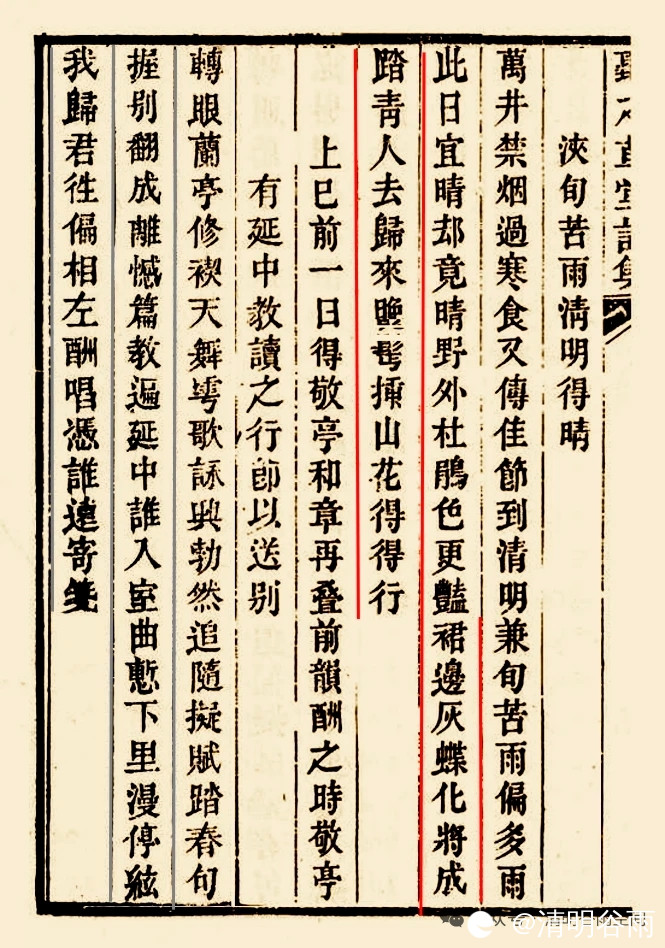 詩集
浹旬苦雨淸明得晴
萬井禁烟過寒食又傳佳節到清明兼旬苦雨偏多雨
此日宜晴却竟晴野外杜鵑色更豔裙邊灰蝶化將成
踏靑人去歸來晚髩揷山花得得行
上巳前一日得敬亭和章再叠前韻酬之時敬亭
有延中教讀之行卽以送别
轉眼蘭亭修禊天舞雩歌詠興勃然追隨擬賦踏春句
握别翻成離憾篇教遍延中誰入室曲慙下里漫停絃
我歸君徃偏相左酬唱憑誰遠寄箋
@清明谷雨